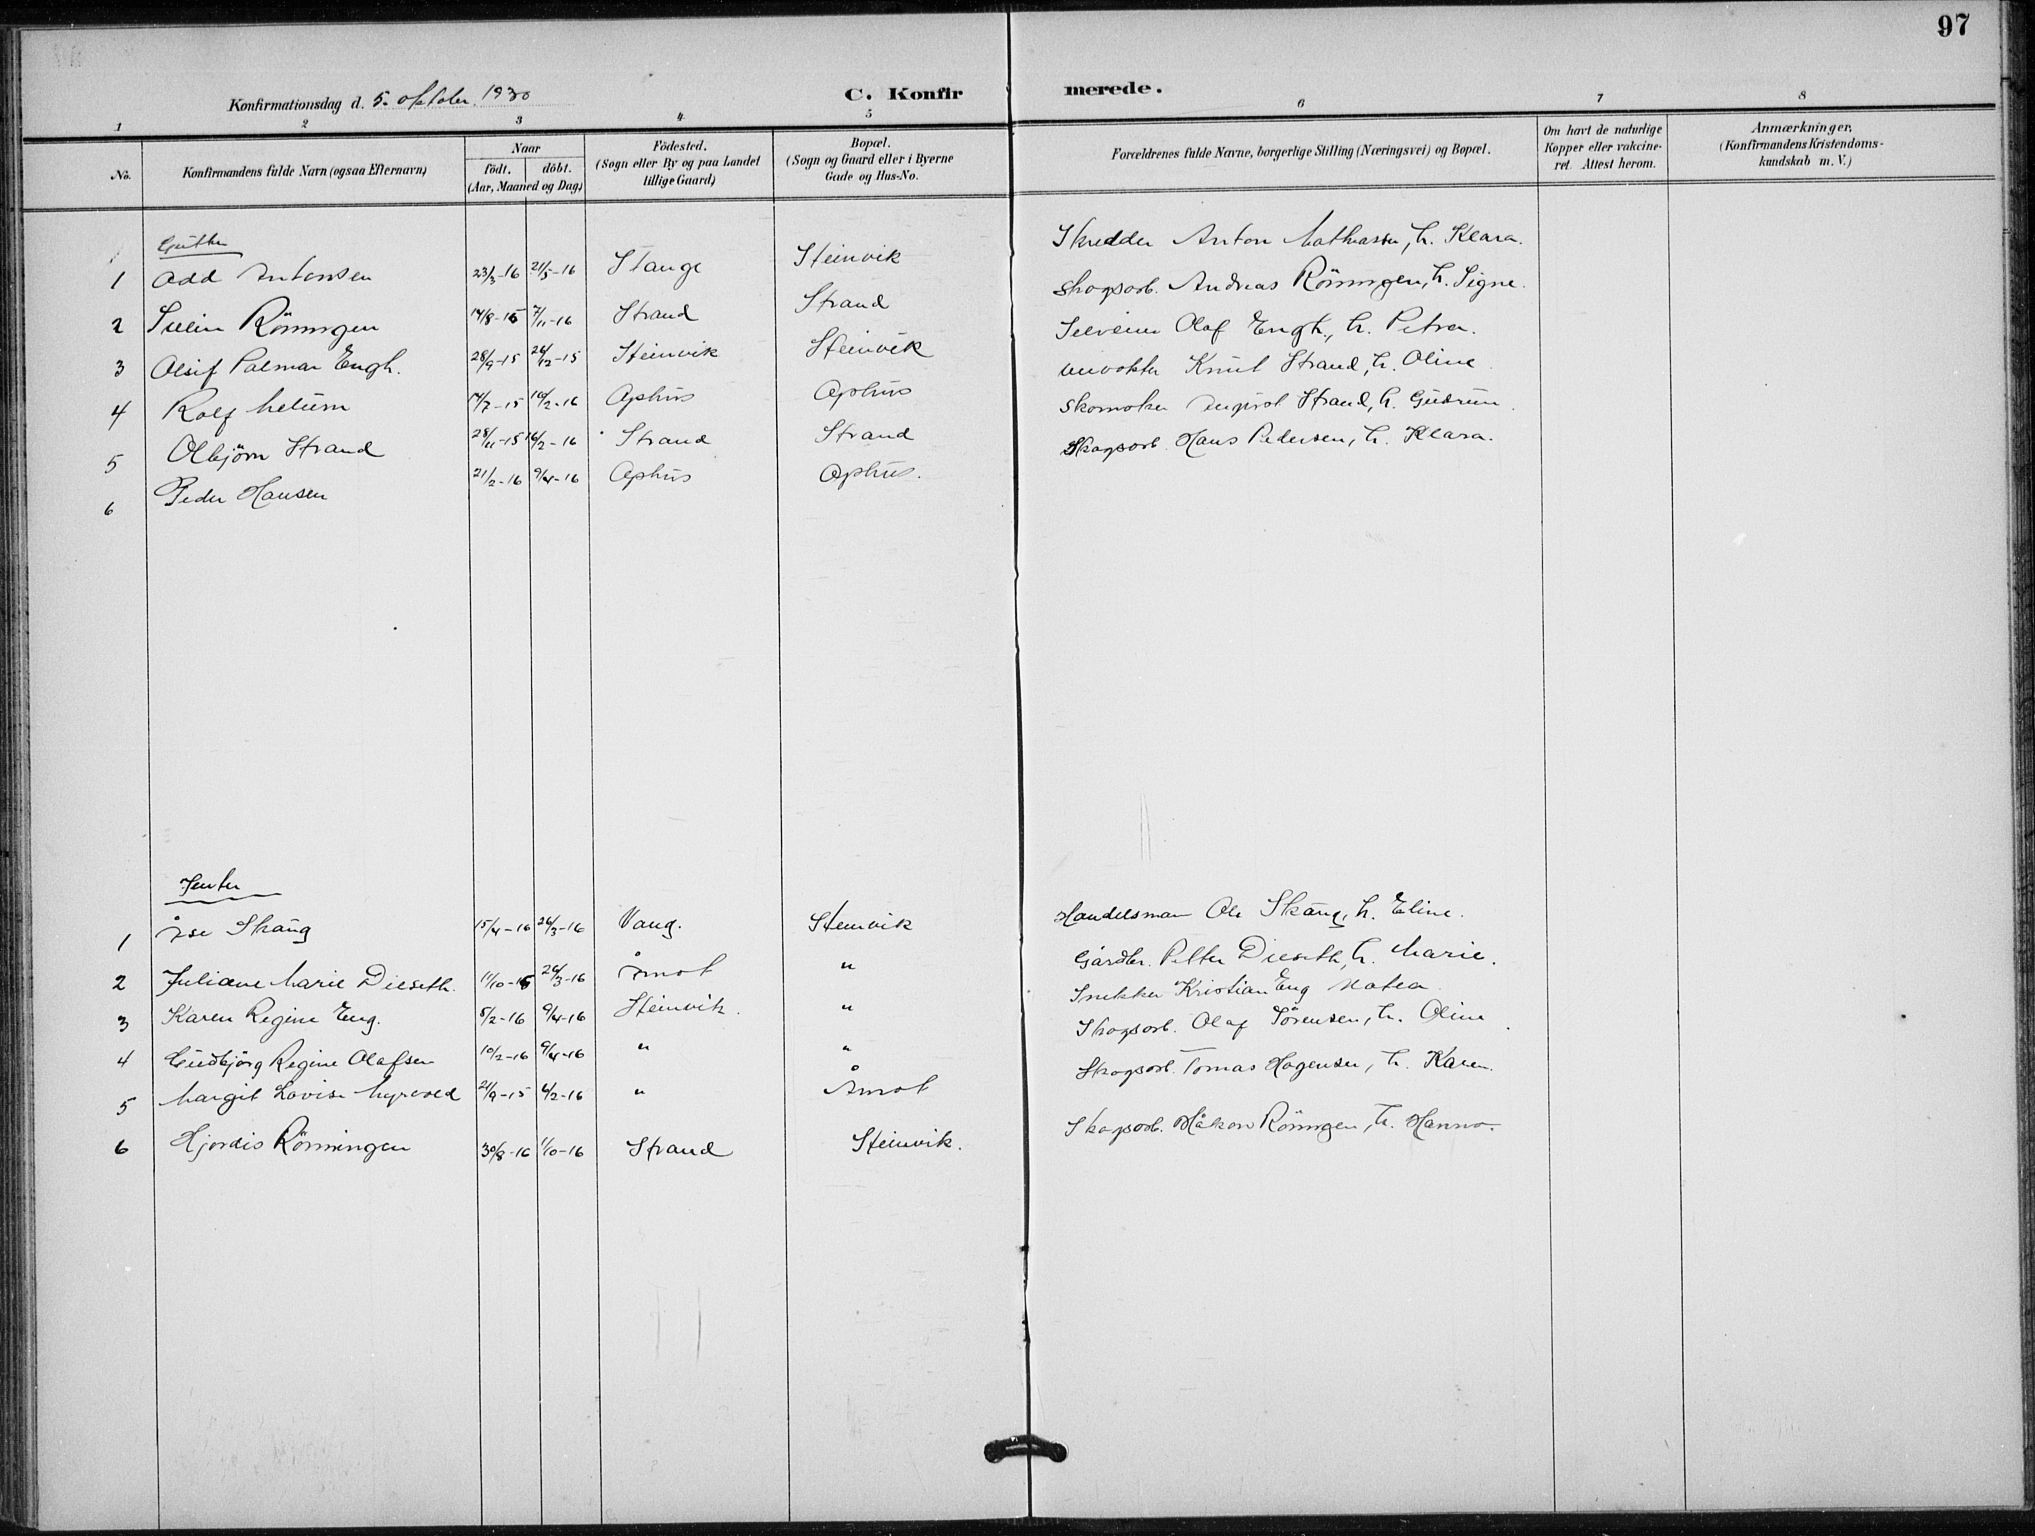 97
Konfirmationsdag d. 5. oktober 1930
C. Konfirmerede.
1 2 3 4 5 6 7 8
No. | Konfirmandens fulde Navn (ogsaa Efternavn) | Naar födt. döbt. (Aar, Maaned og Dag) | Födested. (Sogn eller By og paa Landet tillige Gaard) | Bopæl. (Sogn og Gaard eller i Byerne Gade og Hus-No. | Forældrenes fulde Navne, borgerlige Stilling (Næringsvei) og Bopæl. | Om havt de naturlige Kopper eller vakcineret. Attest herom. | Anmærkninger, (Konfirmandens Kristendomskundskab m. V.)
Gutter
1 Odd Antonsen 23/3-16 21/5-16 Stange Steinvik Skredder Anton Mathiassen, h. Klara.
2 Rönningen 14/8-15 7/11-16 Strand Strand Skogsarb. Andreas Rönningen, h. Signe.
3 Palmar Engh. 28/9-15 26/12-15 Steinvik Steinvik Olaf Engh, h. Petra.
4 Rolf 14/7-15 16/2-16 Ophus Ophus Knut Strand, h. Oline
5 Olbjörn Strand 28/11-15 16/2-16 Strand Strand Skomaker Strand, h. Gudrun.
6 Peder Hansen 21/2-16 9/4-16 Ophus Ophus. Skogsarb. Hans Pedersen, h. Klara.
Jenter
1 Åse Skäng 15/4-16 26/3-16 Vang. Steinvik Handelsman Ole Skäng, h. Eline.
2 Juliane Marie Dieseth. 11/10-15 26/3-16 Åmot " Gårdbr. Petter Dieseth, h. Marie.
3 Karen Regine Eng. 5/2-16 9/4-16 Steinvik. " Snekker Kristian Eng Matea.
4 Gudbjörg Regine Olafsen 10/2-16 9/4-16 " " Skogsarb. Olaf Sörensen, h. Oline.
5 Margit Lovise Myrvold 21/9-15 6/2-16 " Åmot Skogsarb. Tomas Hagensen, h. Karen.
6 Hjordis Rönningen 30/8-16 1/10-16 Strand Steinvik. Skogsarb. Håkon Rönningen, h. Hanna.